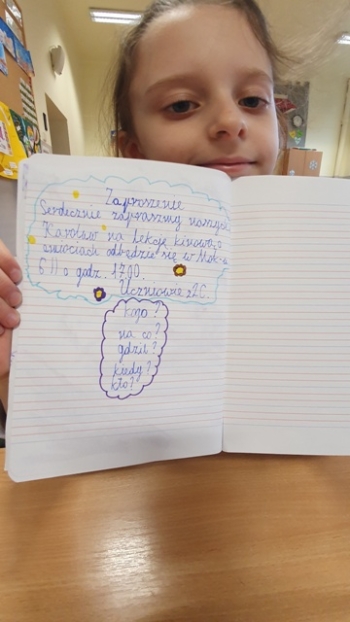 Zaproszenie
Serdecznie zapraszmy naszych
Karolów na lekcję kinową o
emocjach odbędzie się w Mok-u
6 II o godz. 17.00.
Uczniowie z 2C.
Kogo?
na co?
gdzie?
kiedy?
kto?